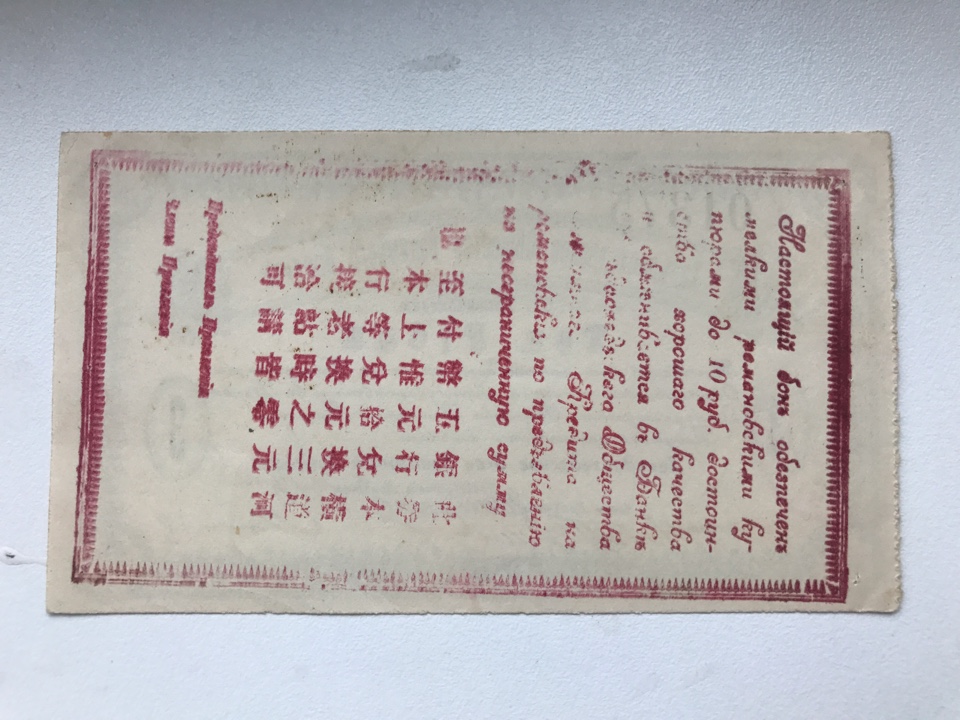 Настоящій бонъ обезпеченъ
мелкими романовскими ку-
пюрами до 10 руб. достоин-
ства хорошаго качества
и обмѣнивается въ Банкѣ
Общества
Кредита на
романовскія, по предъявленію
на неограниченную сумму
此券本
銀行兌換三元
五元拾元之零
幣惟兌換時者
付上等老點請
至本行洽可
Предсѣдатель Правленія
Члены Правленія